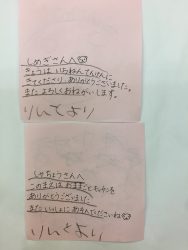 しめぎさんへ
きょうは いちねんてんけんに
きてくださり ありがとうございました。
また よろしくおねがいします。
りんとより
しゃちょうさんへ
このまえは おままごとキッチンを
ありがとうございました
また いっしょに あそんでくださいね
りんとより